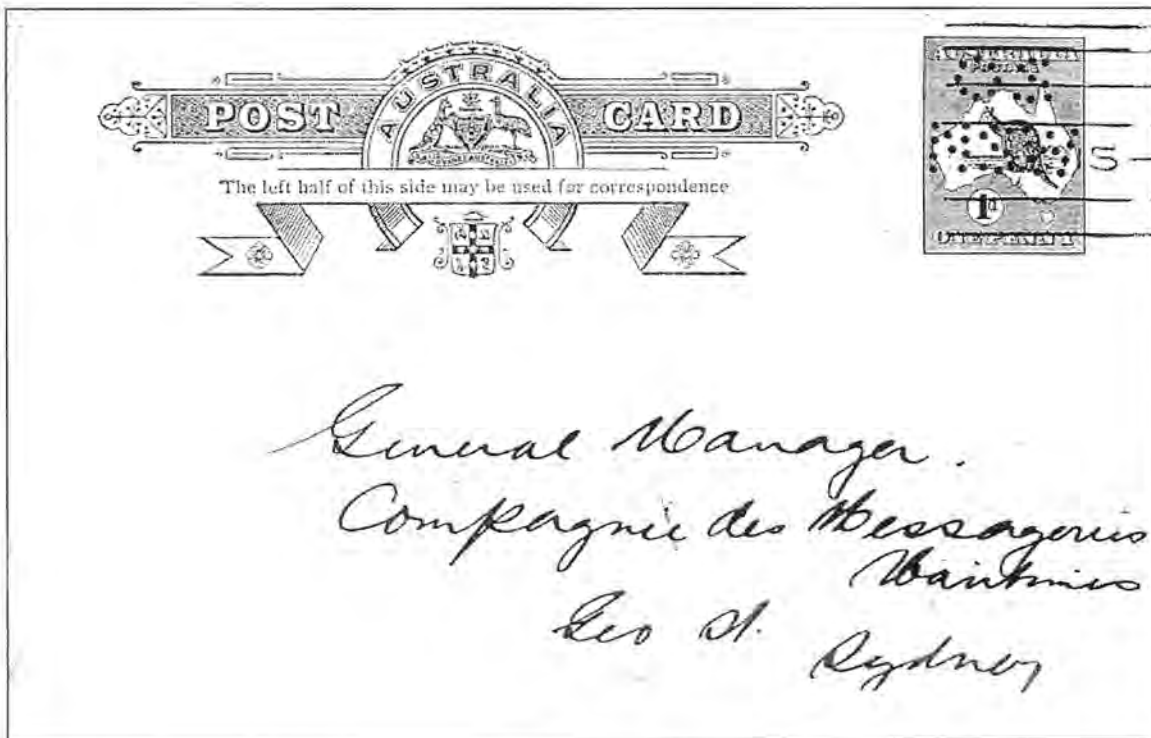 POST AUSTRALIA CARD
The left half of this side may be used for correspondence
AUSTRALIA
POSTAGE
1d
ONE PENNY
S
General Manager.
Compagnie des Messageries
Maritimes
Geo St.
Sydney